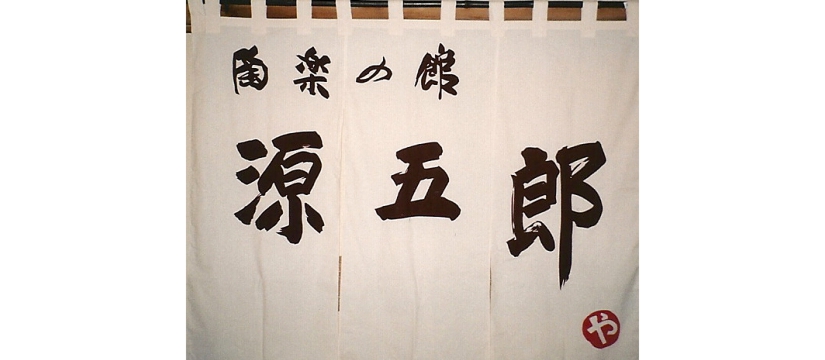 陶楽の館
源五郎
や